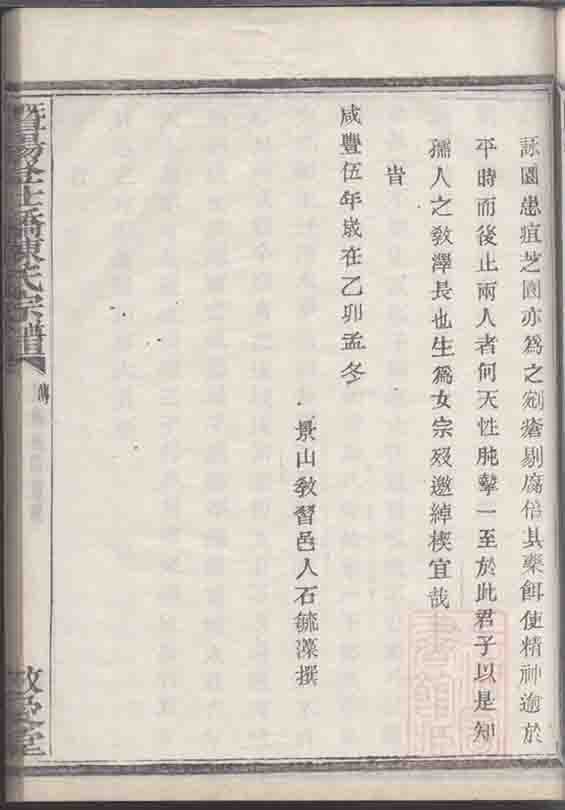 詠園患疽芝園亦為之剜瘡剔腐倍其藥餌使精神逾於
平時而後止兩人者何天性肫摯一至於此君子以是知
孺人之教澤長也生為女宗歿邀綽楔宜哉
旹
咸豐伍年歲在乙卯孟冬
景山教習邑人石毓藻撰
暨陽 橋陳氏宗譜
傳
堂